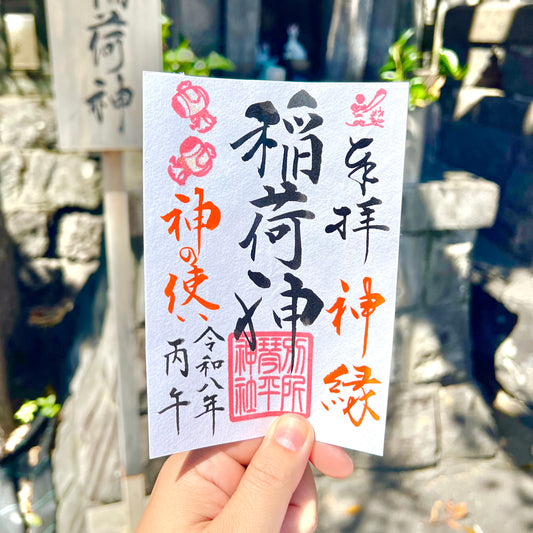 荷神
奉拝
神縁
稲荷神
別所
琴平
神社
神の使い
令和八年
丙午